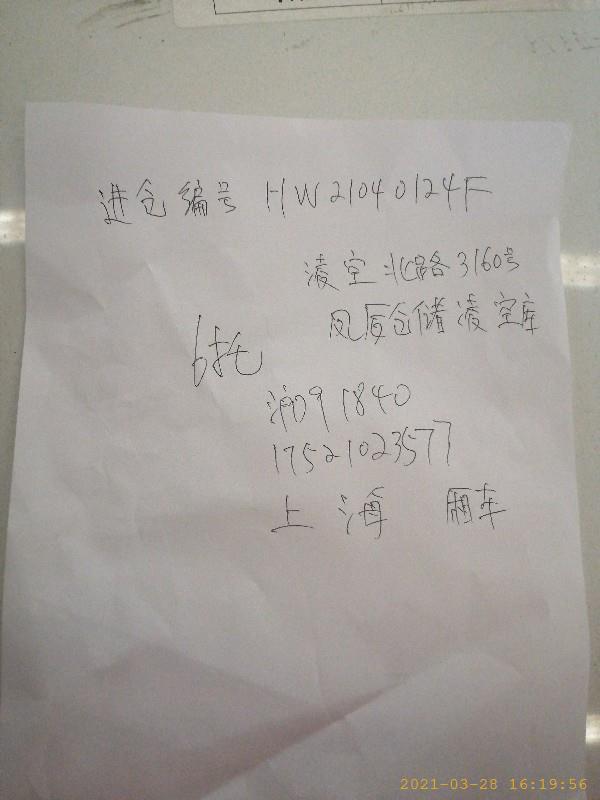 进仓编号 HW21040124F
凌空北路3160号
凤厦仓储凌空库
6托
浦D91840
17521023577
上海 厢车
2021-03-28 16:19:56